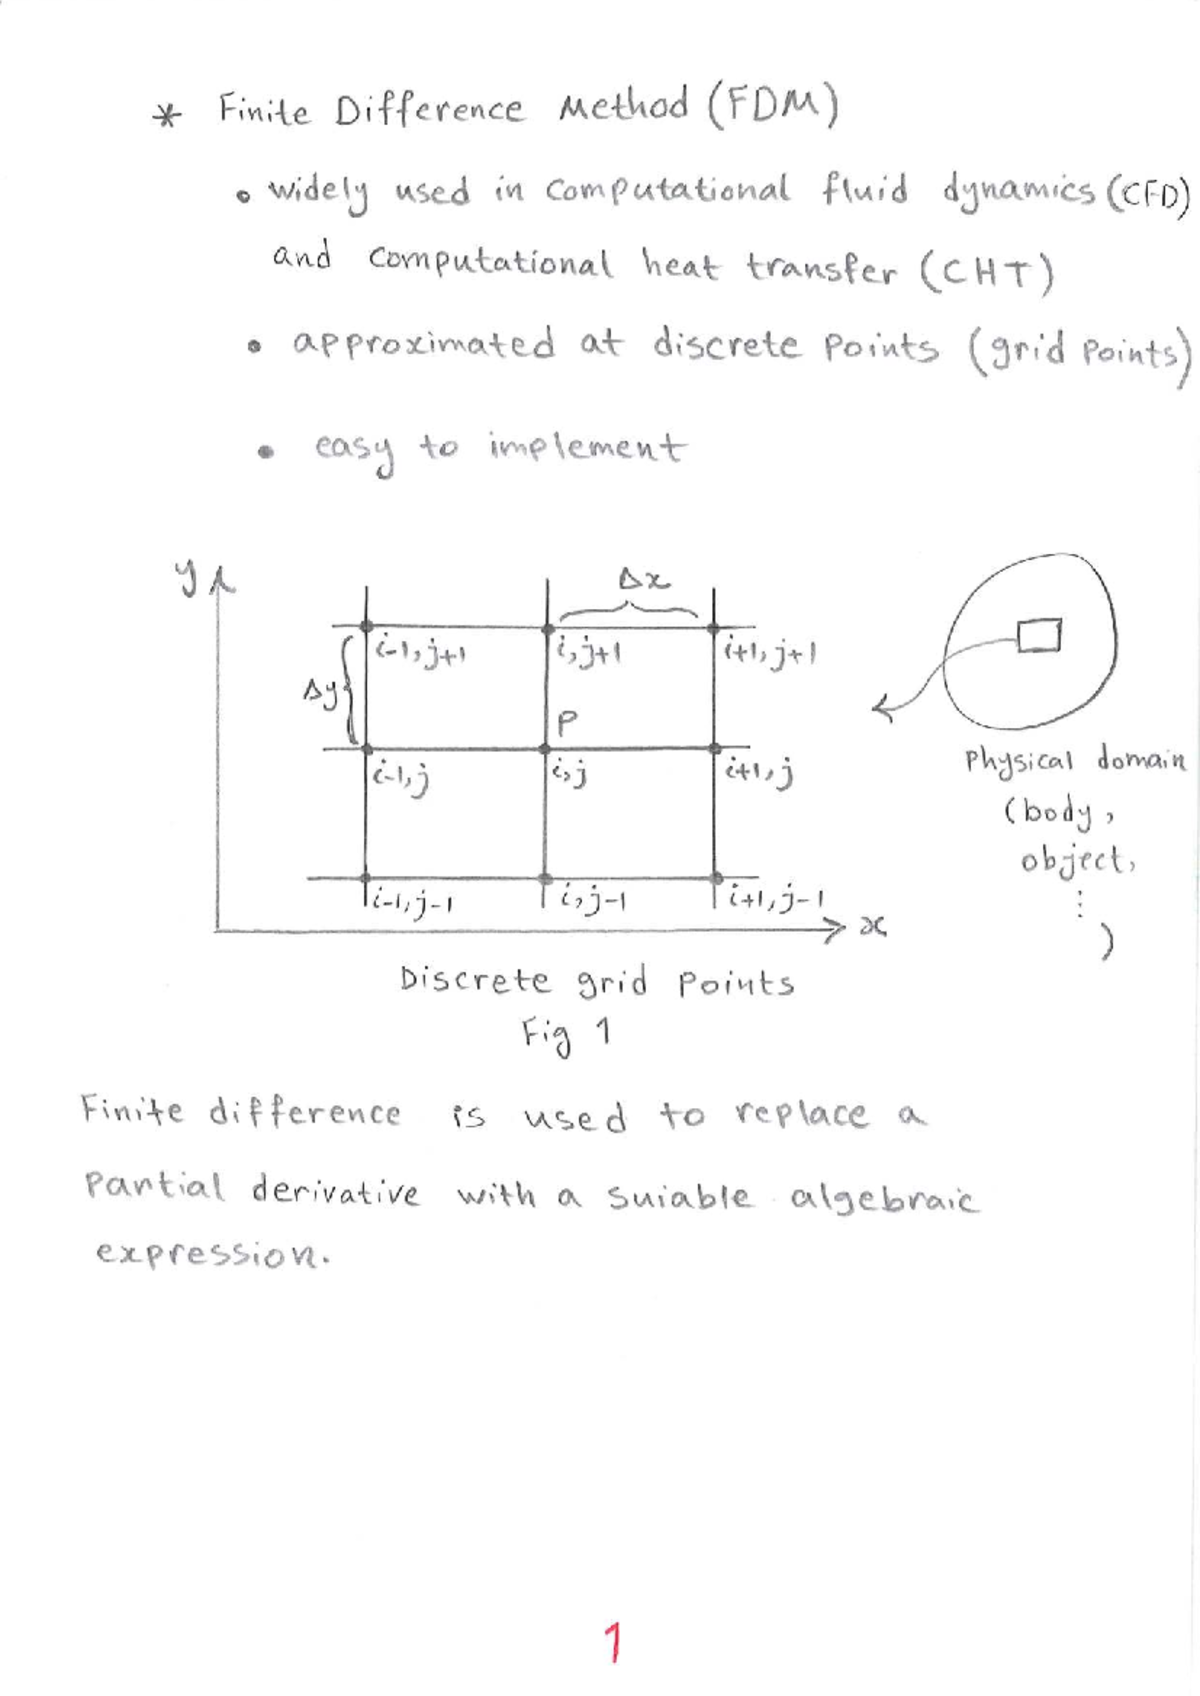 * Finite Difference Method (FDM)
• widely used in computational fluid dynamics (CFD)
and computational heat transfer (CHT)
• approximated at discrete points (grid points)
• easy to implement
y
Δx
i-1,j+1
i,j+1
i+1,j+1
Δy
P
i-1,j
i,j
i+1,j
Physical domain
(body,
object,
⋮
)
i-1,j-1
i,j-1
i+1,j-1
x
Discrete grid points
Fig 1
Finite difference is used to replace a
partial derivative with a suiable algebraic
expression.
1